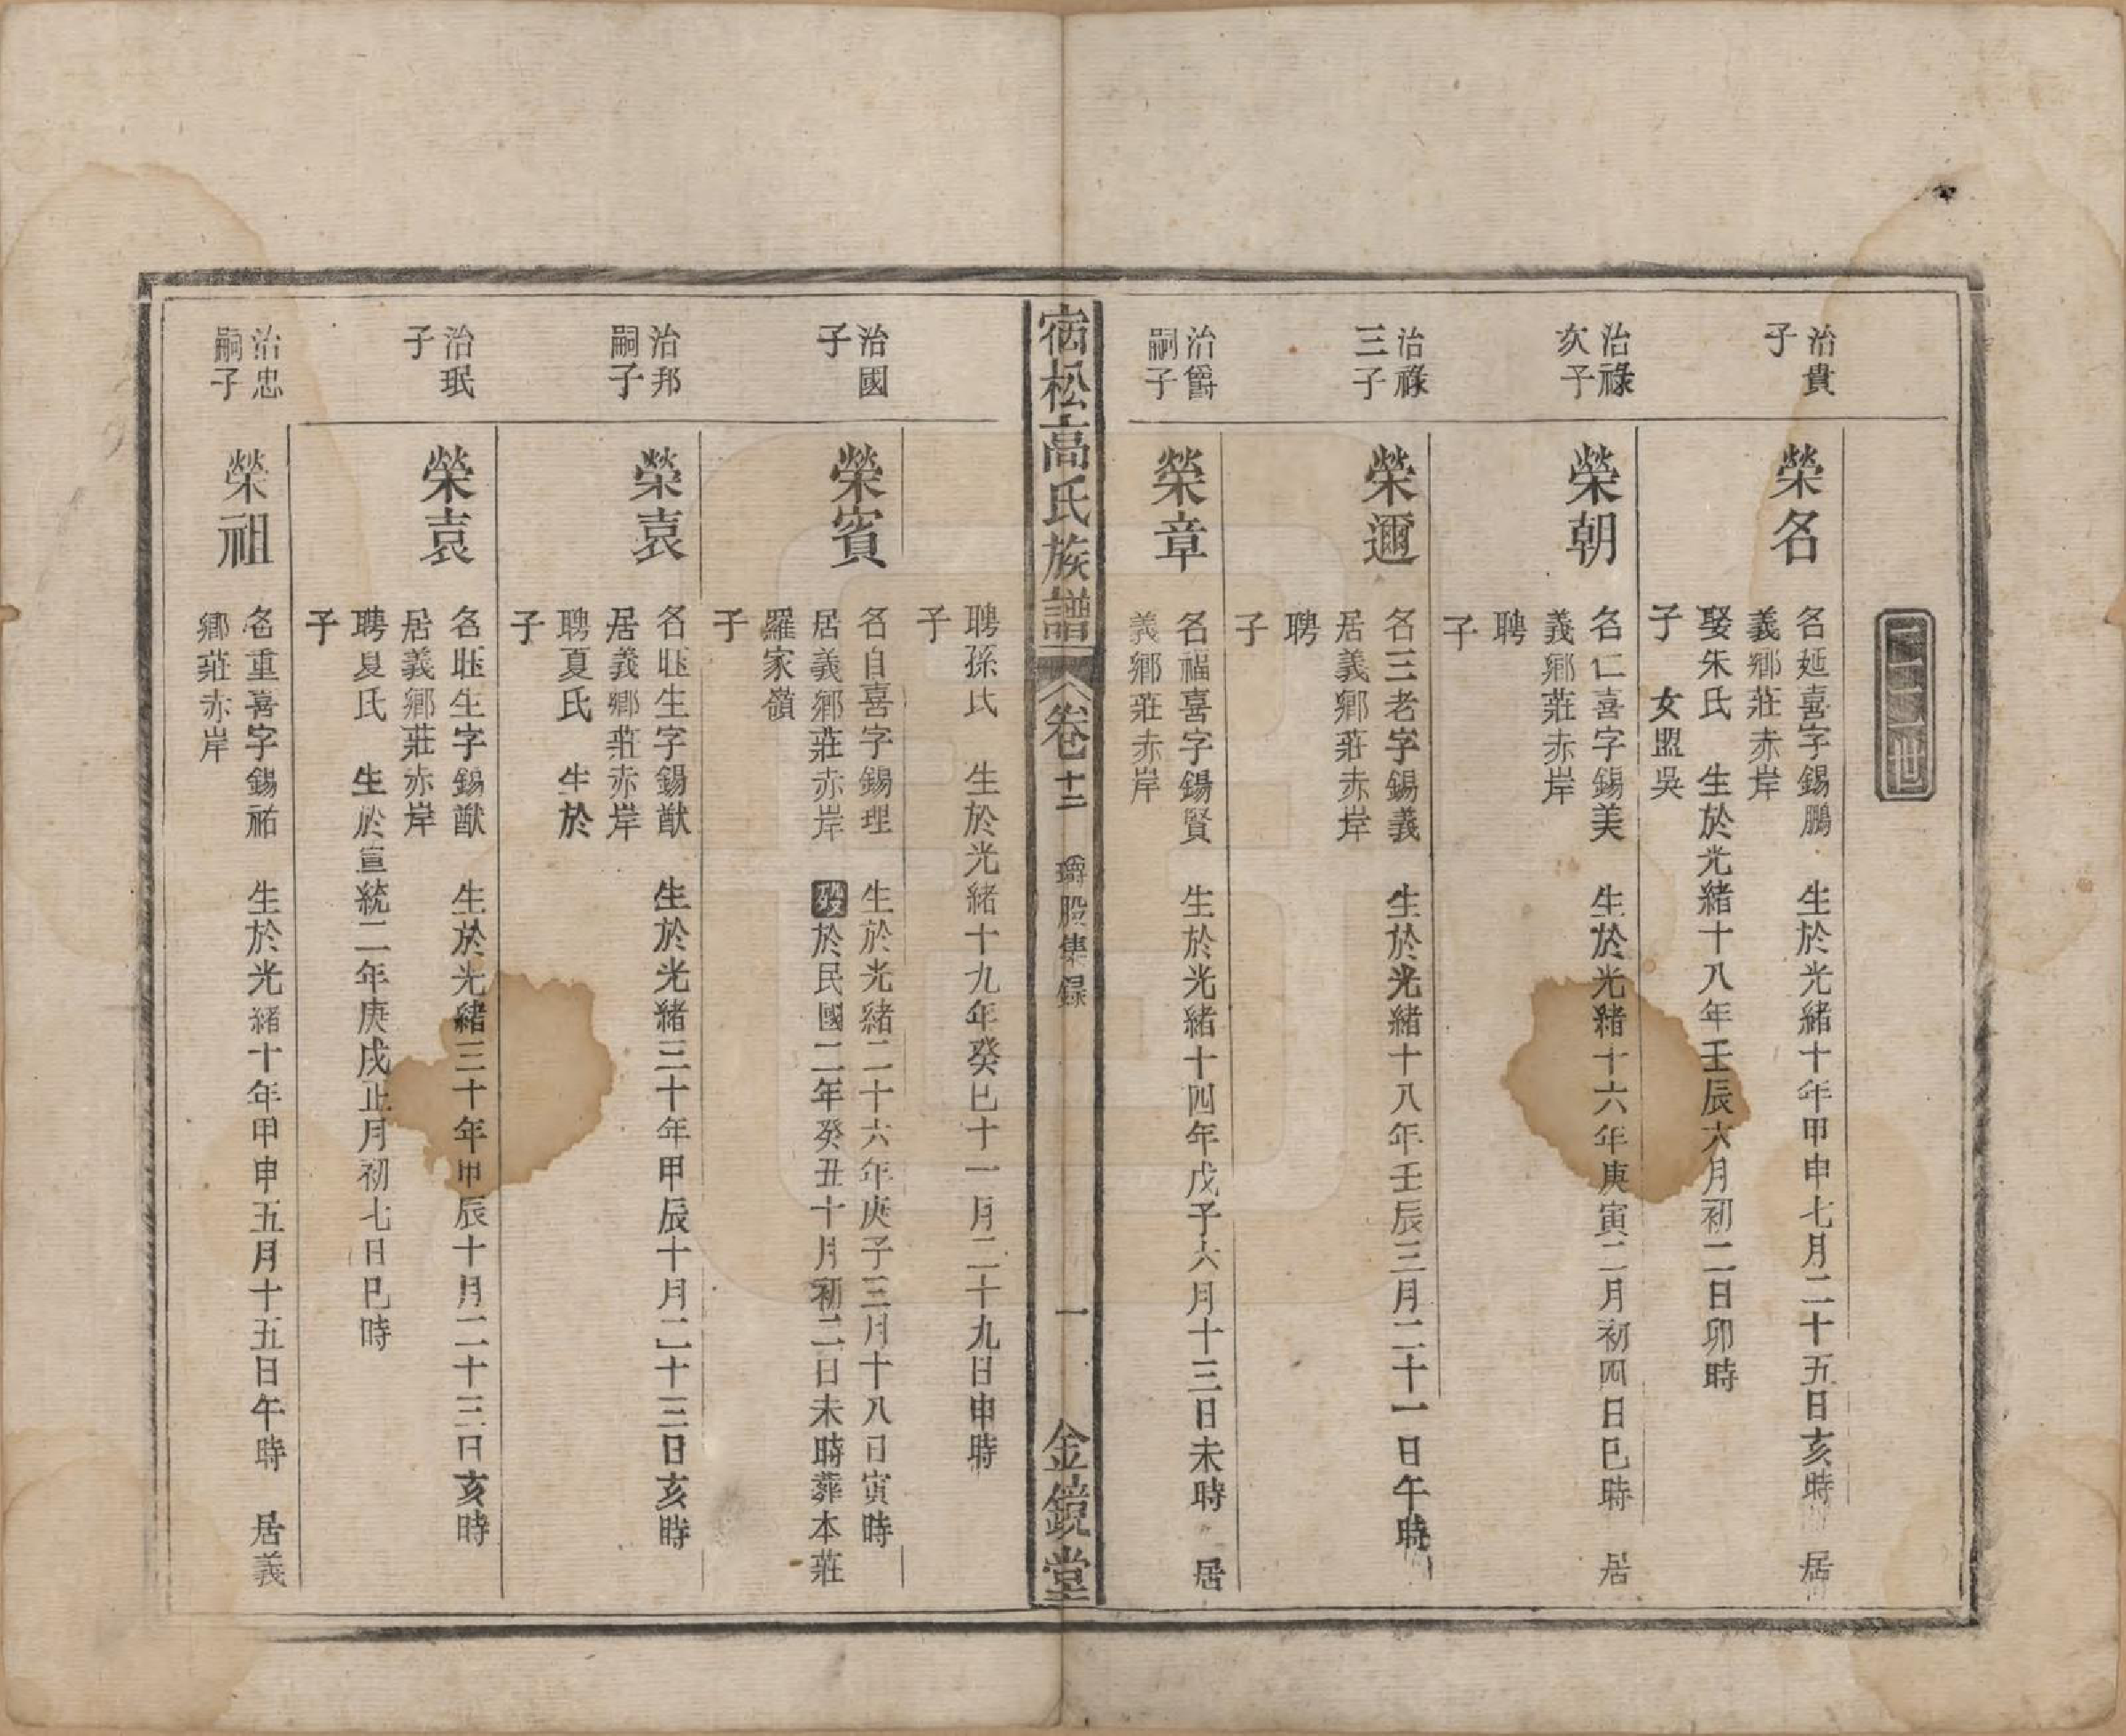 二二世
治貴
子
榮名
名延喜字錫鵬 生於光緒十年甲申七月二十五日亥時 居
義鄉莊赤岸
娶朱氏 生於光緒十八年壬辰六月初二日卯時
子 女盟吳
治祿
次子
榮朝
名仁喜字錫美 生於光緒十六年庚寅二月初四日巳時 居
義鄉莊赤岸
聘
子
治祿
三子
榮邇
名三老字錫義 生於光緒十八年壬辰三月二十一日午時
居義鄉莊赤岸
聘
子
治爵
嗣子
榮章
名福喜字錫賢 生於光緒十四年戊子六月十三日未時 居
義鄉莊赤岸
宿松高氏族譜 卷十二 瓚股集録 一 金鏡堂
聘孫氏 生於光緒十九年癸巳十一月二十九日申時
子
治國
子
榮賓
名自喜字錫理 生於光緒二十六年庚子三月十八日寅時
居義鄉莊赤岸 歿於民國二年癸丑十月初二日未時葬本莊
羅家嶺
子
治邦
嗣子
榮袁
名旺生字錫猷 生於光緒三十年甲辰十月二十三日亥時
居義鄉莊赤岸
聘夏氏 生於
子
治珉
子
榮袁
名旺生字錫猷 生於光緒三十年甲辰十月二十三日亥時
居義鄉莊赤岸
聘夏氏 生於宣統二年庚戌正月初七日巳時
子
治忠
嗣子
榮祖
名重喜字錫祐 生於光緒十年甲申五月十五日午時 居義
鄉莊赤岸